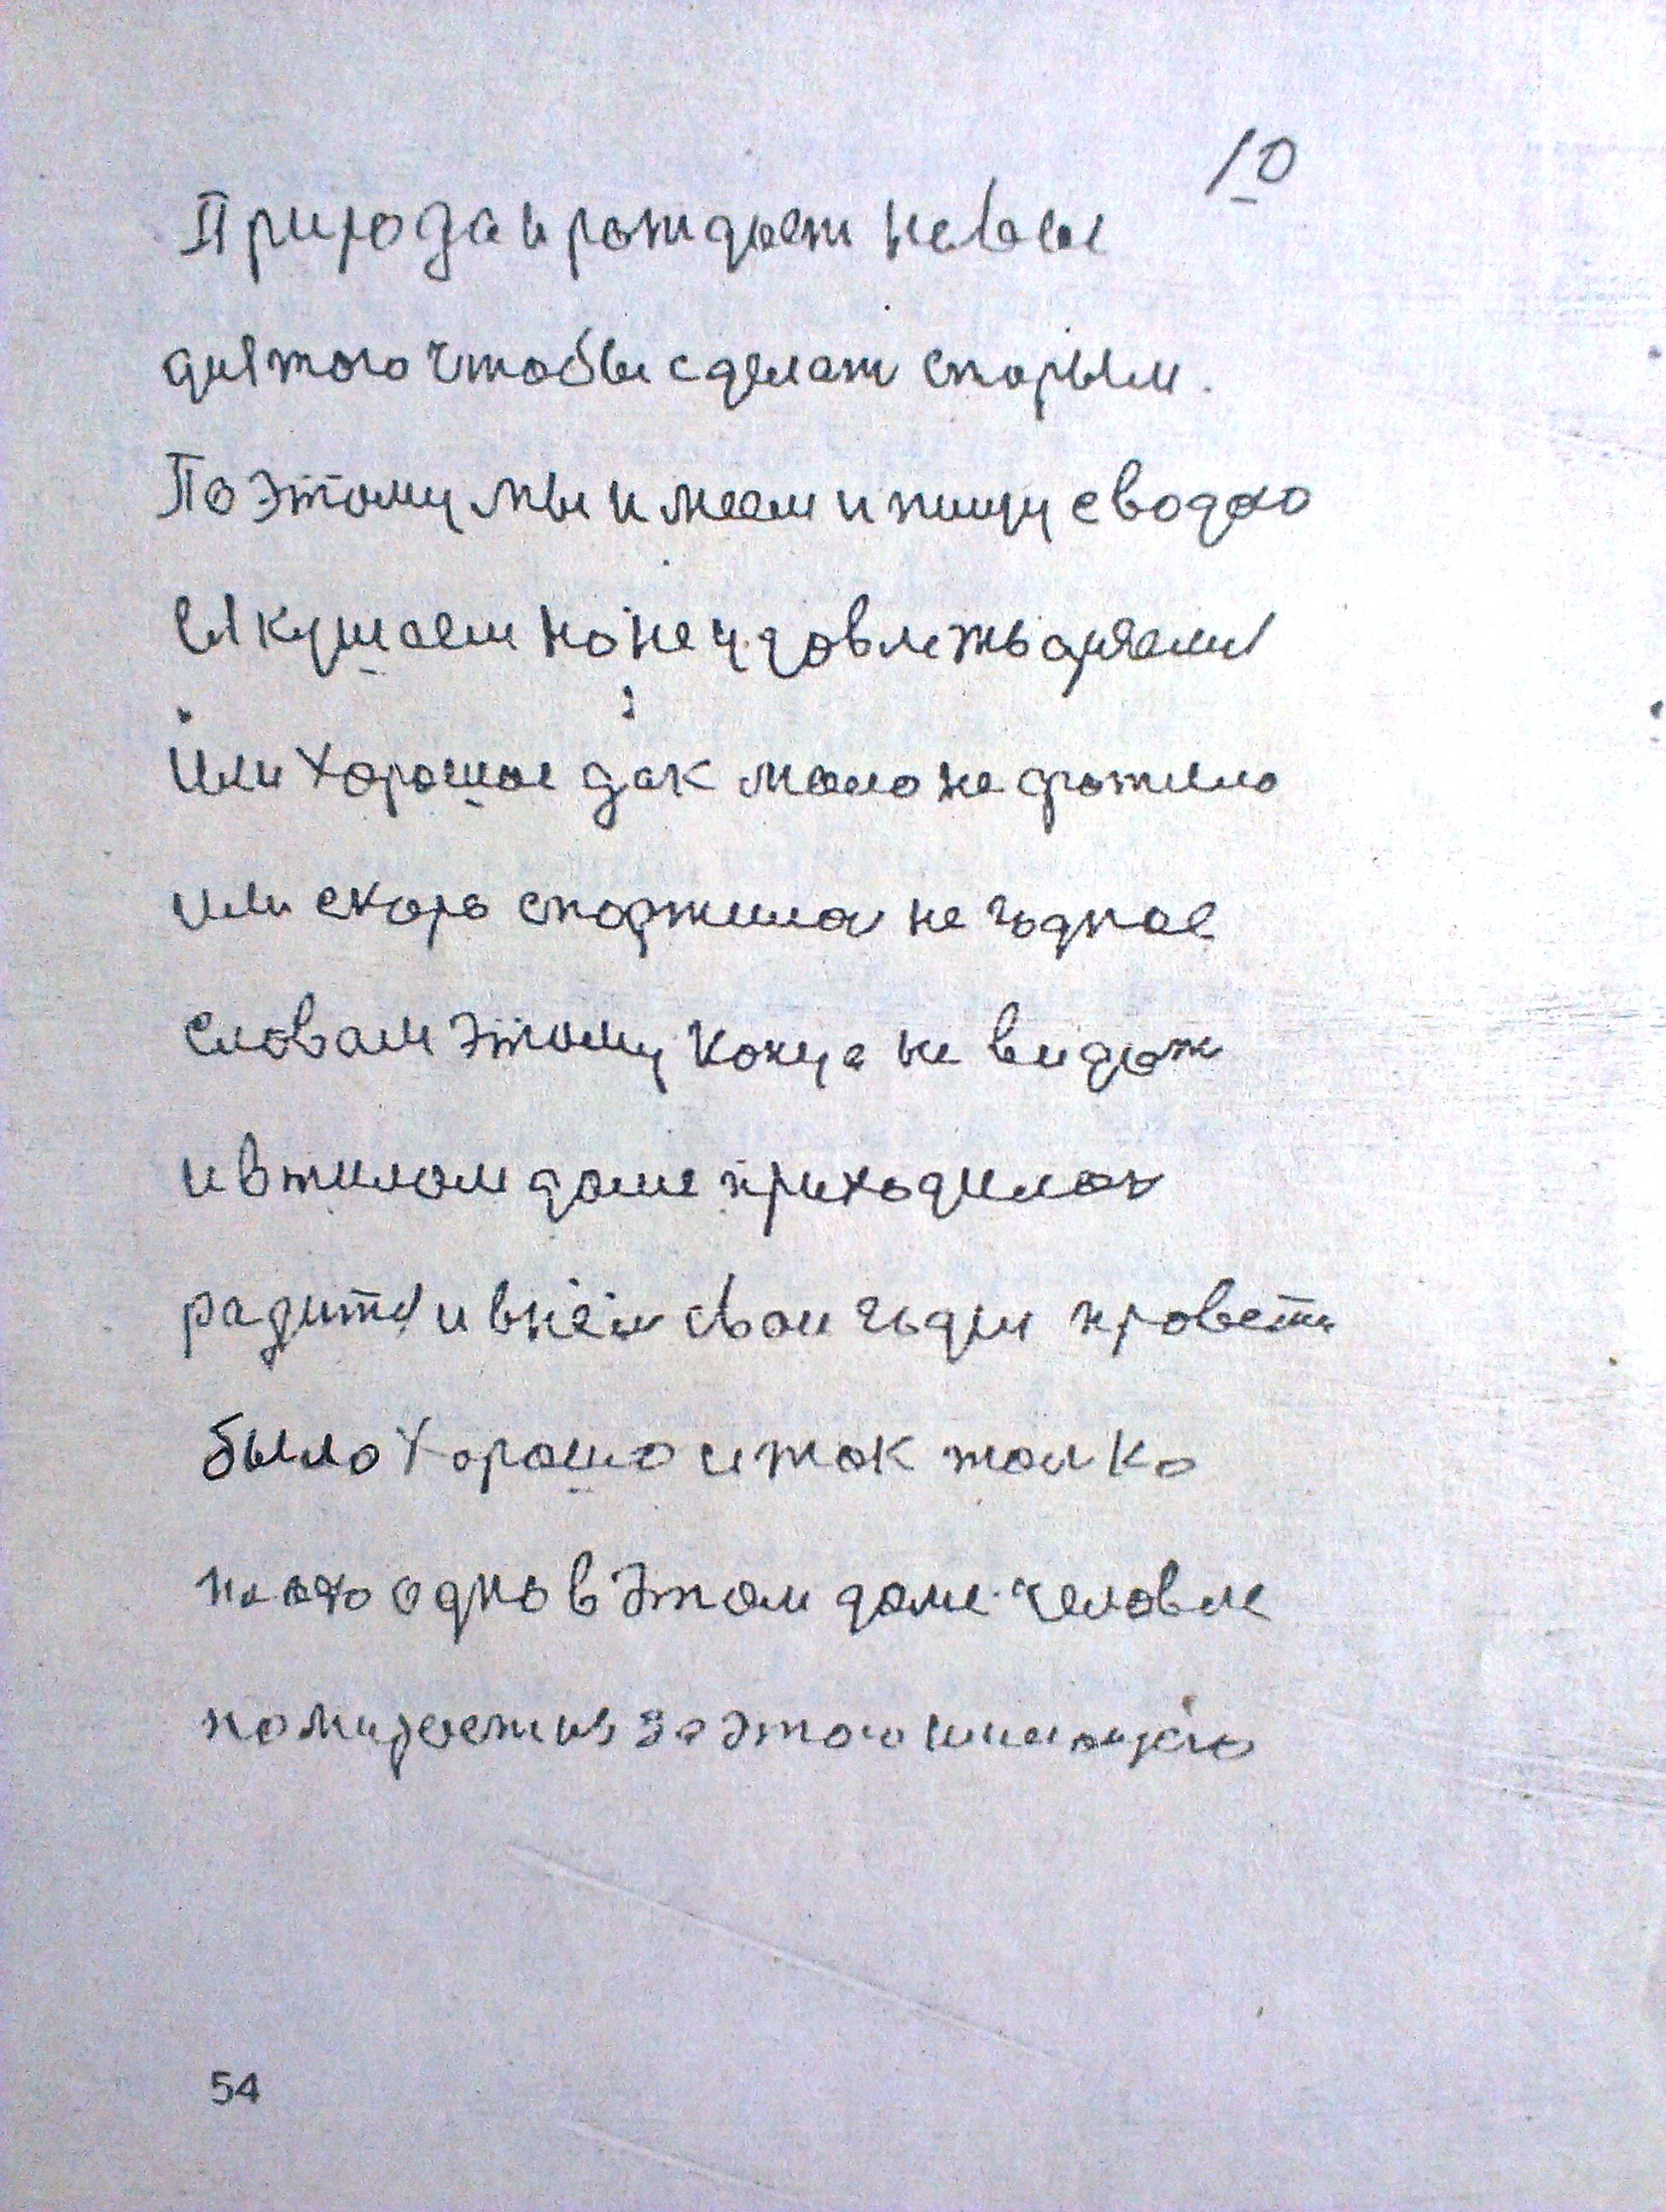 10
Природа и рождает новое
для того чтобы сделат старым.
Поэтому мы имеем и пищу с водою
Ея кушаем но не удовлетваряемся
Или хорошое дак мало не
или скоро не годное
словам этому конца не видат
и в тилом доме приходилос
радится и в нем свои годы провести
было хорошо и так толко
плохо одно в этом доме человек
помирает из за этого
54